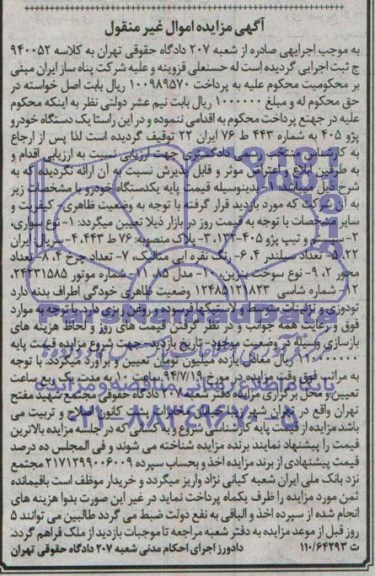 آگهی مزایده اموال غیر منقول
به موجب اجراییه صادره از شعبه ۲۰۷ دادگاه حقوقی تهران به کلاسه ۹۴۰۰۵۲
ج ثبت اجرایی گردیده است له حسنعلی قزوینه و علیه شرکت پناه ساز ایران مبنی
بر محکومیت محکوم علیه به پرداخت ۱۰۰۹۸۹۵۷۰ ریال بابت اصل خواسته در
حق محکوم له و مبلغ ۱۰۰۰۰۰۰ ریال بابت نیم عشر دولتی نظر به اینکه محکوم
علیه در جهت پرداخت محکوم به اقدامی ننموده و در این راستا یک دستگاه خودرو
پژو ۴۰۵ به شماره ۴۴۳ ط ۷۶ ایران ۲۲ توقیف گردیده است لذا پس از ارجاع
به کارشناس دادگستری جهت ارزیابی نسبت به ارزیابی اقدام و
به طرفین ابلاغ و اعتراض موثر و قابل پذیرش نسبت به آن ارائه نگردیده که به
شرح ذیل میباشد. بدینوسیله قیمت پایه یکدستگاه خودرو با مشخصات زیر
که مورد بازدید قرار گرفته با توجه به وضعیت ظاهری و کیفیت و
سایر مشخصات با توجه به قیمت روز در بازار ذیلا تعیین میگردد: ۱- نوع سواری،
۲- سیستم و تیپ پژو ۴۰۵، ۳- پلاک منصوبه: ۷۶ ط ۴۴۳ ایران
۲۲، ۵- تعداد سیلندر ۴، ۶- رنگ نقره ایی متالیک، ۷- تعداد چرخ ۴، ۸- تعداد
محور ۲، ۹- نوع سوخت بنزین، ۱۰- مدل ۸۵، ۱۱- شماره موتور ۲۴۳۳۱۵۸۵،
۱۲- شماره شاسی وضعیت ظاهری خودگی اطراف بدنه دارد
لاستیکها و روغن ریزی دارد با توجه به موارد
فوق و رعایت همه جوانب و در نظر گرفتن قیمت های روز و لحاظ هزینه های
بازسازی وسیله در وضعیت موجود تاریخ بازدید جهت شروع مزایده قیمت پایه
ریال معادل یازده میلیون تومان تعیین و برآورد میگردد. با توجه
به مراتب فوق وقت مزایده در مورخ ۹۴/۷/۱۹ ساعت ۱۰ به مدت یک ربع ساعت
تعیین و محل برگزاری مزایده دفتر شعبه ۲۰۷ دادگاه حقوقی مجتمع شهید مفتح
تهران واقع در تهران کانون اصلاح و تربیت می
باشد مزایده از قیمت پایه کارشناسی شروع و به کسانی که در جلسه مزایده بالاترین
قیمت را پیشنهاد نمایند برنده مزایده شناخته می شوند و فی المجلس ده درصد
قیمت پیشنهادی از برنده مزایده اخذ و بحساب سپرده ۲۱۷۱۲۹۹۰۰۶۰۰۹ مجتمع
نزد بانک ملی ایران شعبه کیانی نژاد واریز میگردد و خریدار موظف است باقیمانده
ثمن مورد مزایده را ظرف یکماه پرداخت نماید در غیر این صورت بدوا هزینه های
انجام شده از سپرده اخذ و الباقی به نفع دولت ضبط می گردد طالبین می توانند ۵
روز قبل از موعد مزایده به دفتر شعبه مراجعه تا موجبات بازدید از ملک فراهم گردد.
ت ۱۱۰/۶۴۲۹۳ دادورز اجرای احکام مدنی شعبه ۲۰۷ دادگاه حقوقی تهران
پایگاه اطلاع رسانی مناقصه و مزایده
۰۲۱-۸۸۳۴۹۶۷۰-۵